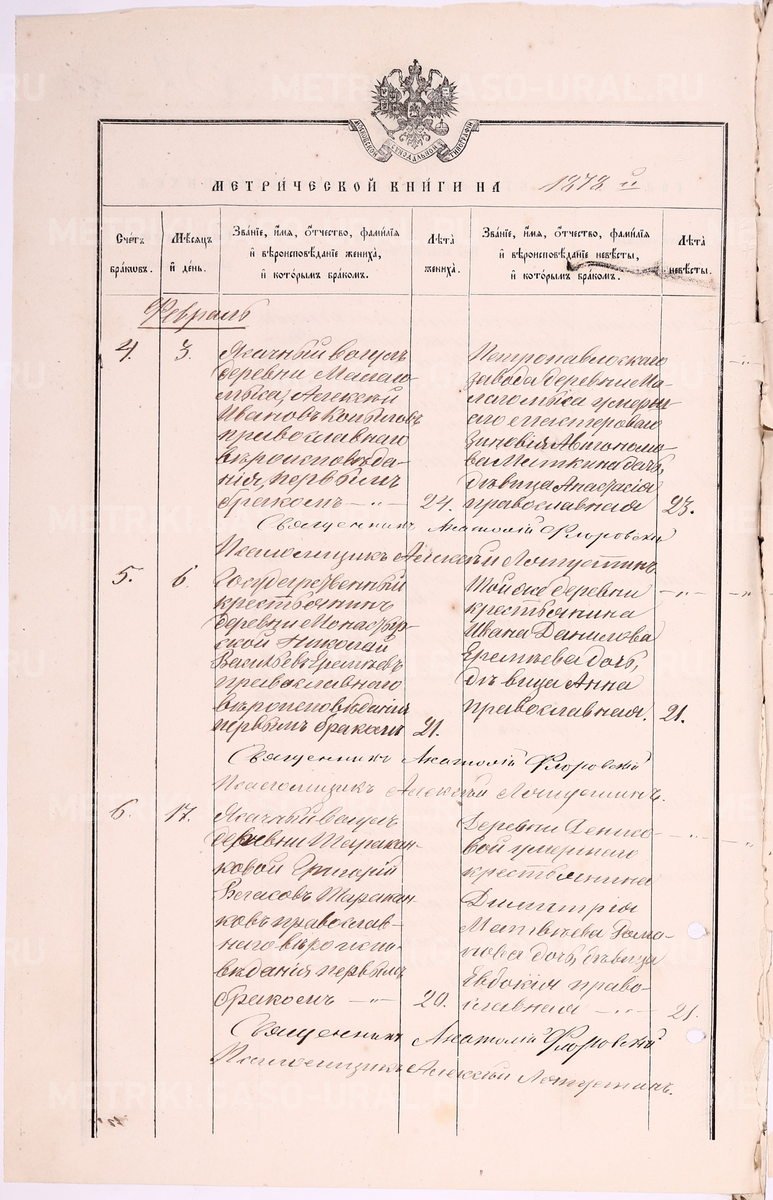 МОСКОВСКОЙ СѴНОДАЛЬНОЙ ТИПОГРАФІИ
МЕТРИ́ЧЕСКОЙ КНИ́ГИ НА 1878 й
Сче́тъ бра́кωвъ.
Мѣ́сяцъ и҆ де́нь.
Зва́нїе, и҆́мя, ѻ҆́тчество, фами́лїя и҆ вѣроисповѣ́данїе жениха̀, и҆ кото́рымъ бра́комъ.
Лѣ̑та жениха̀.
Зва́нїе, и҆́мя, ѻ҆́тчество, фами́лїя и҆ вѣроисповѣ́данїе невѣ́сты, и҆ кото́рымъ бра́комъ.
Лѣ̑та невѣ́сты.
Февраль
4. 3.
Ясачный вогулъ
деревни
Алексѣй
Ивановъ
православнаго
вѣроисповѣда-
нія, первымъ
бракомъ — „ — 24.
Петропавловскаго
завода деревни Ма-
умерш-
аго мастероваго
Зиновія
дочь,
дѣвица Анастасія
православная 23.
Священникъ Анатолій Флоровскій
Псаломщикъ Алексѣй
5. 6.
Государственный
крестьянинъ
деревни Монастыр-
ской Николай
Васильевъ Еремѣевъ
православнаго
вѣроисповѣданія
первымъ бракомъ 21.
Той же деревни
крестьянина
Ивана Данилова
Еремѣева дочь,
дѣвица Анна
православная. 21.
Священникъ Анатолій Флоровскій
Псаломщикъ Алексѣй
6. 17.
Ясачный вогулъ
деревни Таракан-
ковой Григорій
Таракан-
ковъ православ-
наго вѣроиспо-
вѣданія первымъ
бракомъ — „ — 20.
Деревни Денисо-
вой умершаго
крестьянина
Димитрія
Матвѣева Рома-
нова дочь, дѣвица
Евдокія право-
славная — „ — 21.
Священникъ Анатолій Флоровскій
Псаломщикъ Алексѣй
METRIKI.GASO-URAL.RU